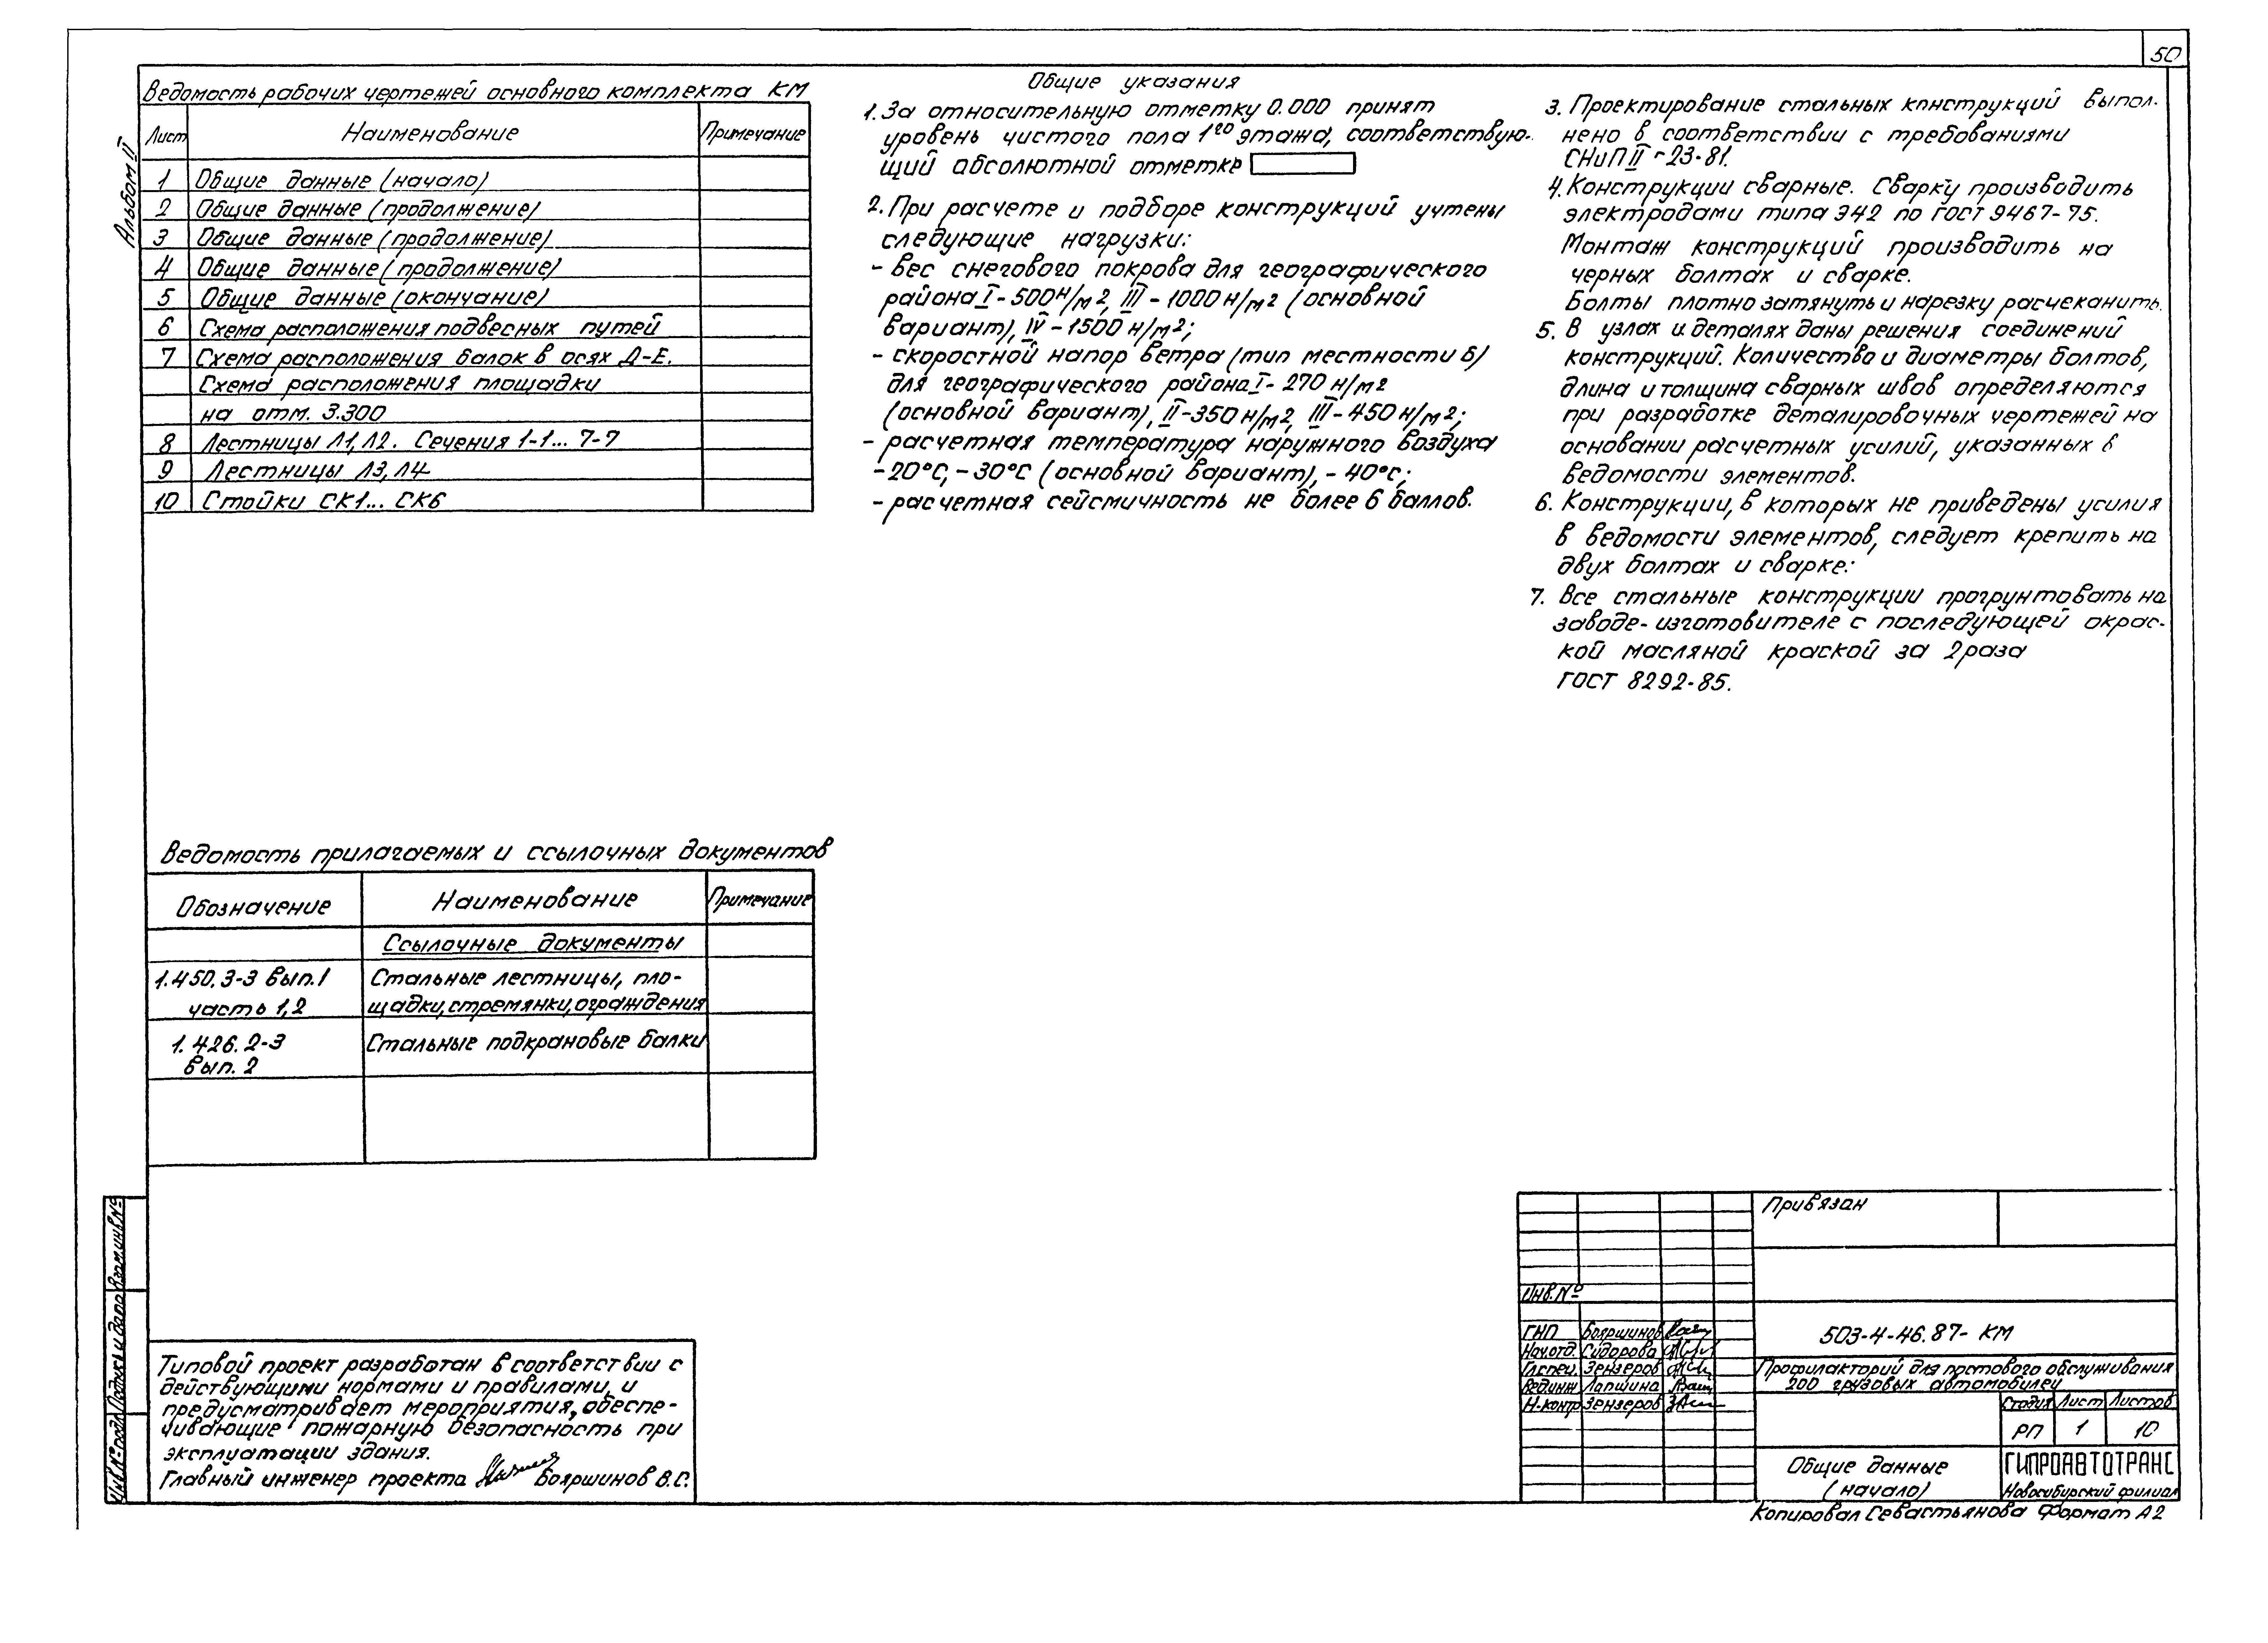 50
Альбом II
Ведомость рабочих чертежей основного комплекта КМ
Лист Наименование Примечание
1 Общие данные (начало)
2 Общие данные (продолжение)
3 Общие данные (продолжение)
4 Общие данные (продолжение)
5 Общие данные (окончание)
6 Схема расположения подвесных путей
7 Схема расположения балок в осях Д-Е.
Схема расположения площадки
на отм. 3.300
8 Лестницы Л1, Л2. Сечения 1-1... 7-7
9 Лестницы Л3, Л4
10 Стойки СК1... СК6
Ведомость прилагаемых и ссылочных документов
Обозначение Наименование Примечание
Ссылочные документы
1.450.3-3 вып.1 Стальные лестницы, пло-
часть 1,2 щадки, стремянки, ограждения
1.426.2-3 Стальные подкрановые балки
вып. 2
Типовой проект разработан в соответствии с
действующими нормами и правилами, и
предусматривает мероприятия, обеспе-
чивающие пожарную безопасность при
эксплуатации здания.
Главный инженер проекта Бояршинов В.С.
Общие указания
1. За относительную отметку 0.000 принят
уровень чистого пола 1го этажа, соответствую-
щий абсолютной отметке
2. При расчете и подборе конструкций учтены
следующие нагрузки:
- вес снегового покрова для географического
района I - 500 н/м2, III - 1000 н/м2 (основной
вариант), IV - 1500 н/м2;
- скоростной напор ветра (тип местности Б)
для географического района I - 270 н/м2
(основной вариант), II - 350 н/м2, III - 450 н/м2;
- расчетная температура наружного воздуха
- 20°С, - 30°С (основной вариант), - 40°С;
- расчетная сейсмичность не более 6 баллов.
3. Проектирование стальных конструкций выпол-
нено в соответствии с требованиями
СНиП II - 23-81.
4. Конструкции сварные. Сварку производить
электродами типа Э42 по ГОСТ 9467-75.
Монтаж конструкций производить на
черных болтах и сварке.
Болты плотно затянуть и нарезку расчеканить.
5. В узлах и деталях даны решения соединений
конструкций. Количество и диаметры болтов,
длина и толщина сварных швов определяются
при разработке деталировочных чертежей на
основании расчетных усилий, указанных в
ведомости элементов.
6. Конструкции, в которых не приведены усилия
в ведомости элементов, следует крепить на
двух болтах и сварке.
7. Все стальные конструкции прогрунтовать на
заводе-изготовителе с последующей окрас-
кой масляной краской за 2 раза
ГОСТ 8292-85.
Привязан
Инв.№
ГИП Бояршинов
Нач.отд. Сидорова
Гл.спец. Зензеров
Вед.инж Лапшина
Н.контр Зензеров
503-4-46.87- КМ
Профилакторий для постового обслуживания
200 грузовых автомобилей
Стадия Лист Листов
РП 1 10
Общие данные
(начало)
ГИПРОАВТОТРАНС
Новосибирский филиал
Копировал Севастьянова Формат А2
Инв.№ подл. Подпись и дата Взам.инв.№